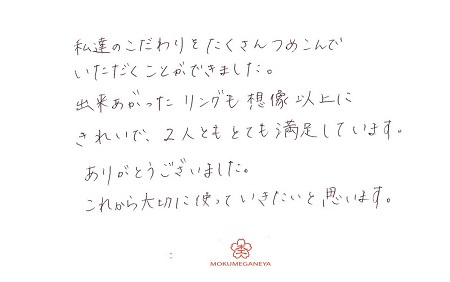 私達のこだわりをたくさんつめこんで
いただくことができました。
出来あがったリングも想像以上に
きれいで、2人ともとても満足しています。
ありがとうございました。
これから大切に使っていきたいと思います。
MOKUMEGANEYA